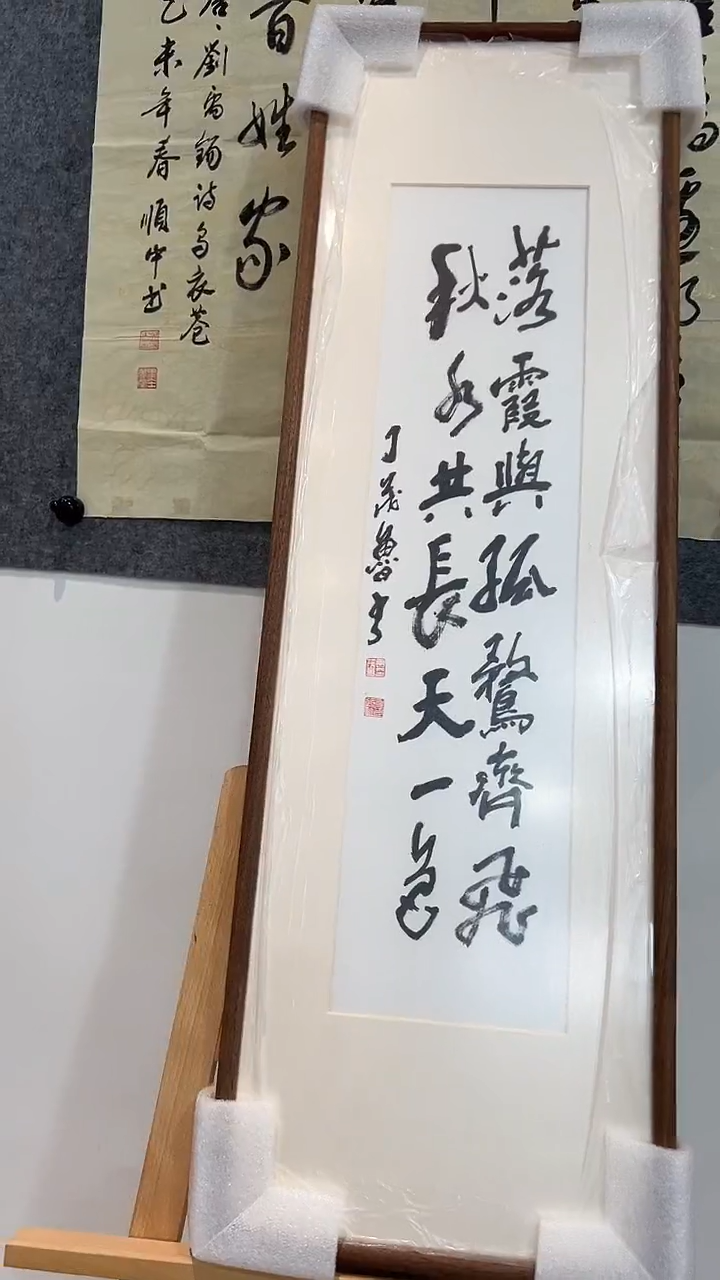 落霞與孤鶩齊飛
秋水共長天一色
丁茂魯书
百姓家
唐、劉禹錫诗乌衣巷
乙未年春順中书